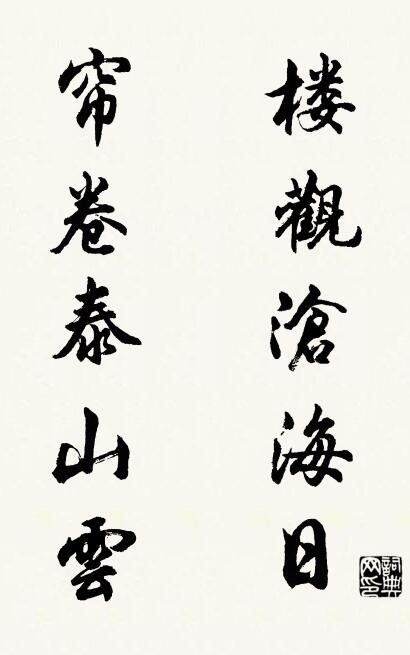 楼觀滄海日
帘卷泰山雲
詞典网印